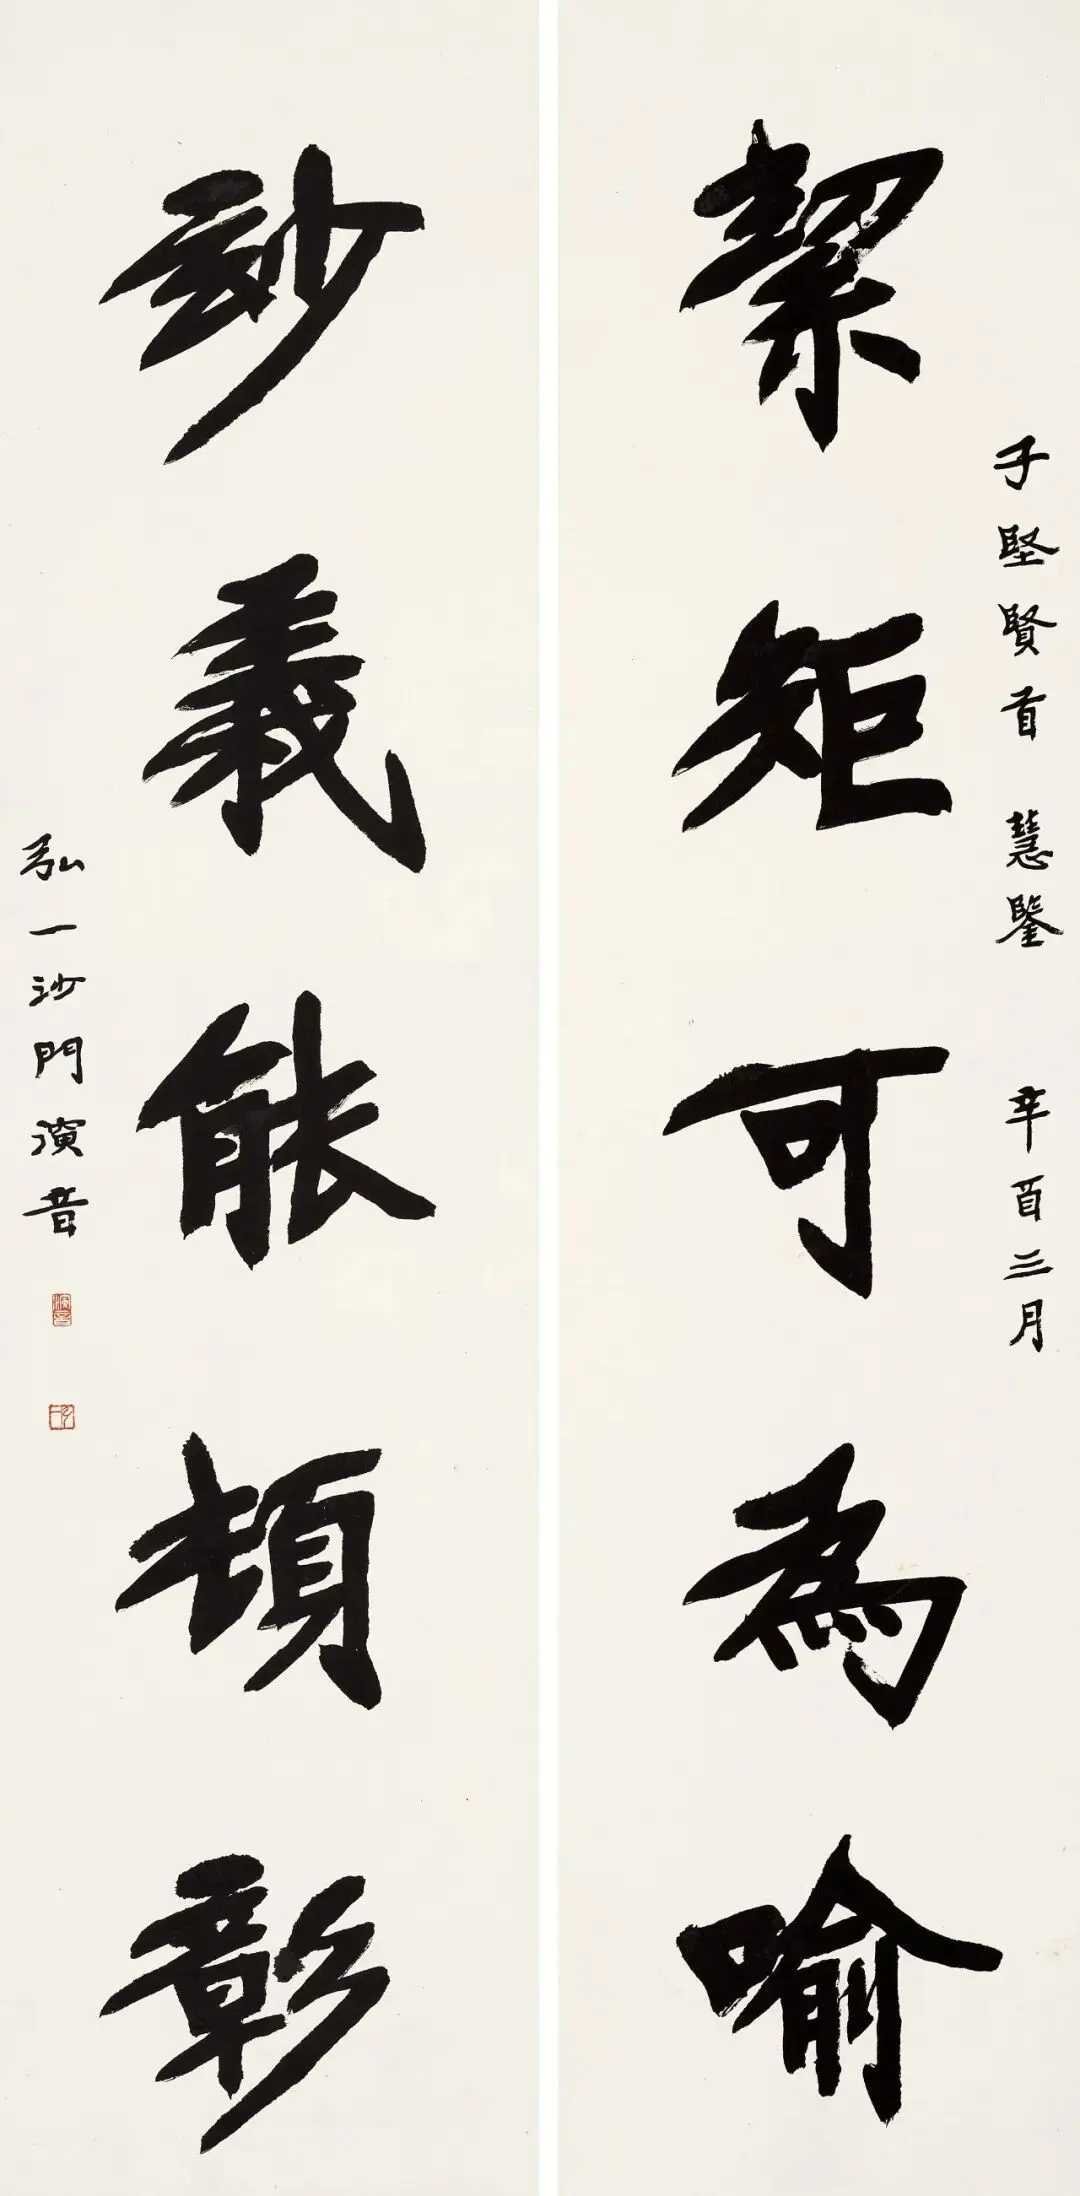 子堅賢首 慧鑒 辛酉三月
絜矩可為喻
玅義能頓彰
弘一沙門演音